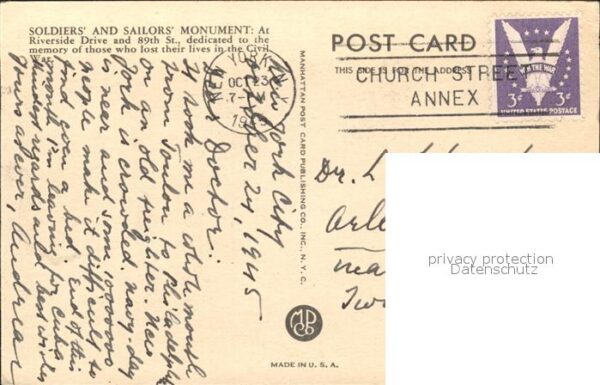 SOLDIERS' AND SAILORS' MONUMENT: At
Riverside Drive and 89th St., dedicated to the
memory of those who lost their lives in the Civil
War.
New York City
October 24, 1945
Dear Doctor:
It took me a whole month
from Toulon to Philadelphia
on an old freighter. New
York is crowded. navy-day
is near and some 1000000
people make it difficult to
find even a bed. End of this
month I'm leaving for Cuba
Kindest regards and best wishes
Yours as ever, Andrew
MANHATTAN POST CARD PUBLISHING CO., INC., N. Y. C.
MPCo
MADE IN U. S. A.
POST CARD
THIS SIDE IS FOR THE ADDRESS
NEW YORK, N.Y.
OCT 23
7-PM
CHURCH STREET
ANNEX
WIN THE WAR
3¢ 3¢
UNITED STATES POSTAGE
Dr.
privacy protection
Datenschutz